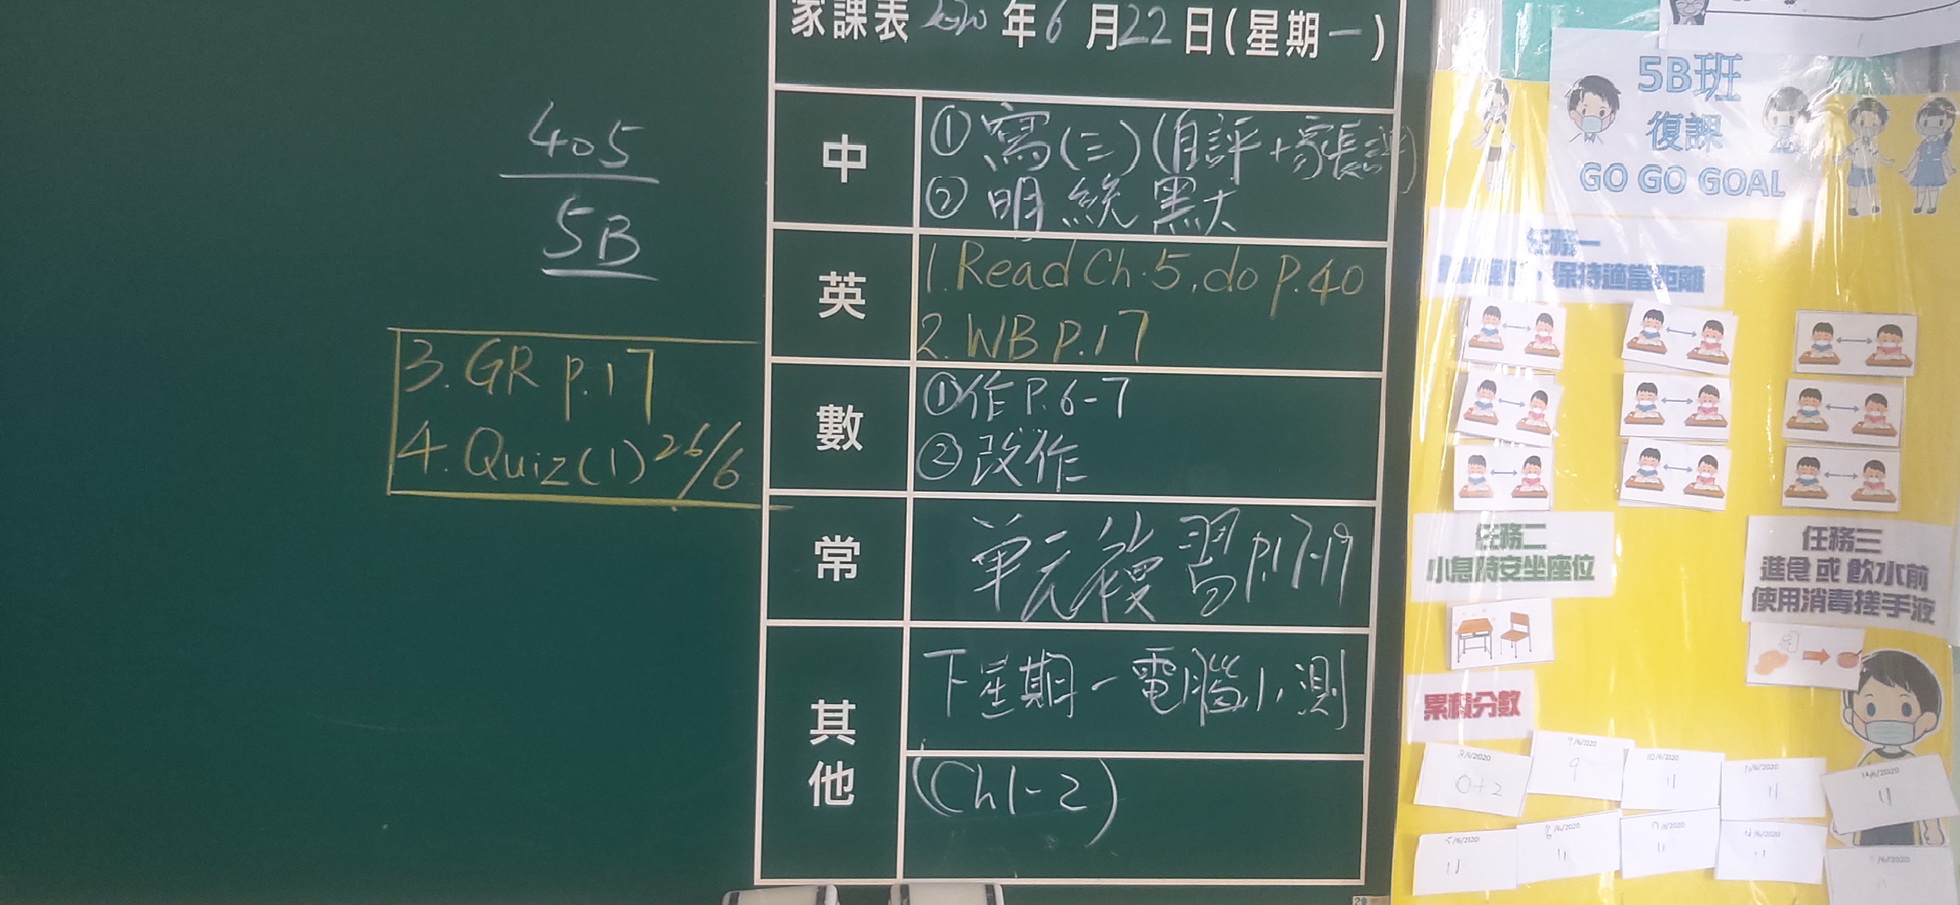 家課表 2020 年 6 月 22 日(星期一)
405
5B
中
① 寫(三)(自評+家長評)
② 明統默
英
1. Read Ch.5, do p.40
2. WB P.17
3. GR p.17
4. Quiz(1) 26/6
數
①作P.6-7
②改作
常
單元複習p.17-19
其他
下星期一電腦小測
(Ch1-2)
5B班
復課
GO GO GOAL
任務一
保持適當距離
任務二
小息時安坐座位
任務三
進食或飲水前
使用消毒搓手液
累積分數
0+2
9
11
11
11
11
11
11
11